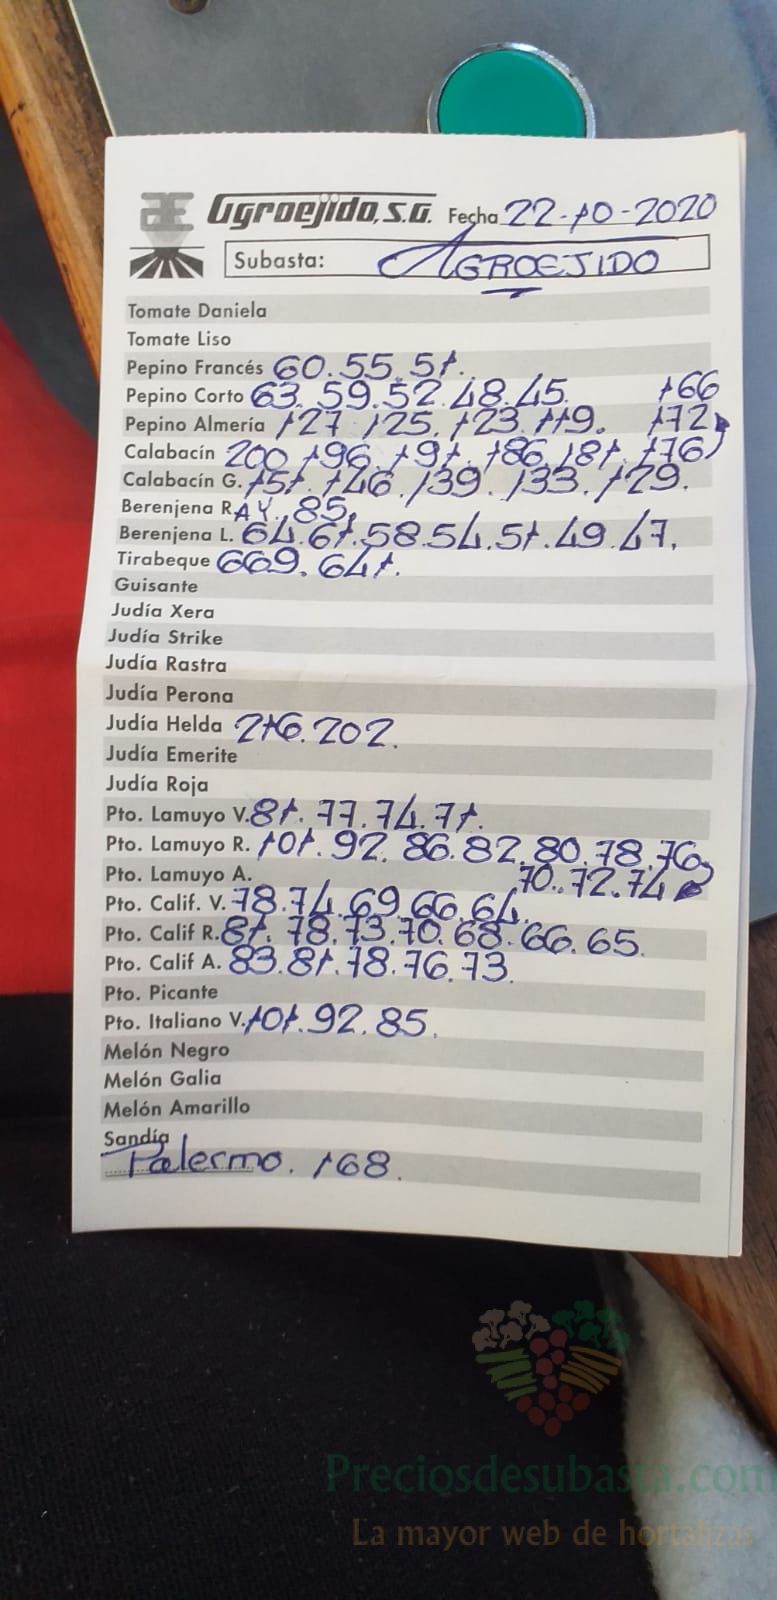 Agroejido, S.A. Fecha 22-10-2020
Subasta: AGROEJIDO
Tomate Daniela
Tomate Liso
Pepino Francés 60. 55. 51.
Pepino Corto 63. 59. 52. 48. 45. 166
Pepino Almería 127 125. 123. 119. 172
Calabacín 200 196 191. 186 181. 176
Calabacín G. 151. 146. 139. 133. 129.
Berenjena RAY. 85.
Berenjena L. 64. 61. 58. 54. 51. 49. 47.
Tirabeque 669. 641.
Guisante
Judía Xera
Judía Strike
Judía Rastra
Judía Perona
Judía Helda 216. 202.
Judía Emerite
Judía Roja
Pto. Lamuyo V. 81. 77. 74. 71.
Pto. Lamuyo R. 101. 92. 86. 82. 80. 78. 76
Pto. Lamuyo A. 70. 72. 74
Pto. Calif. V. 78. 74. 69. 66. 64.
Pto. Calif R. 81. 78. 73. 70. 68. 66. 65.
Pto. Calif A. 83. 81. 78. 76. 73.
Pto. Picante
Pto. Italiano V. 101. 92. 85.
Melón Negro
Melón Galia
Melón Amarillo
Sandía
Palermo. 168.
Preciosdesubasta.com
La mayor web de hortalizas